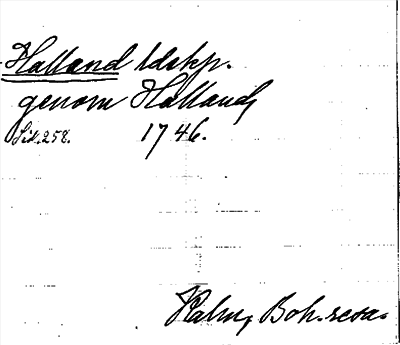 Halland ldskp.
genom Halland,
Sid. 258. 1746.
Kalm, Boh. resa.